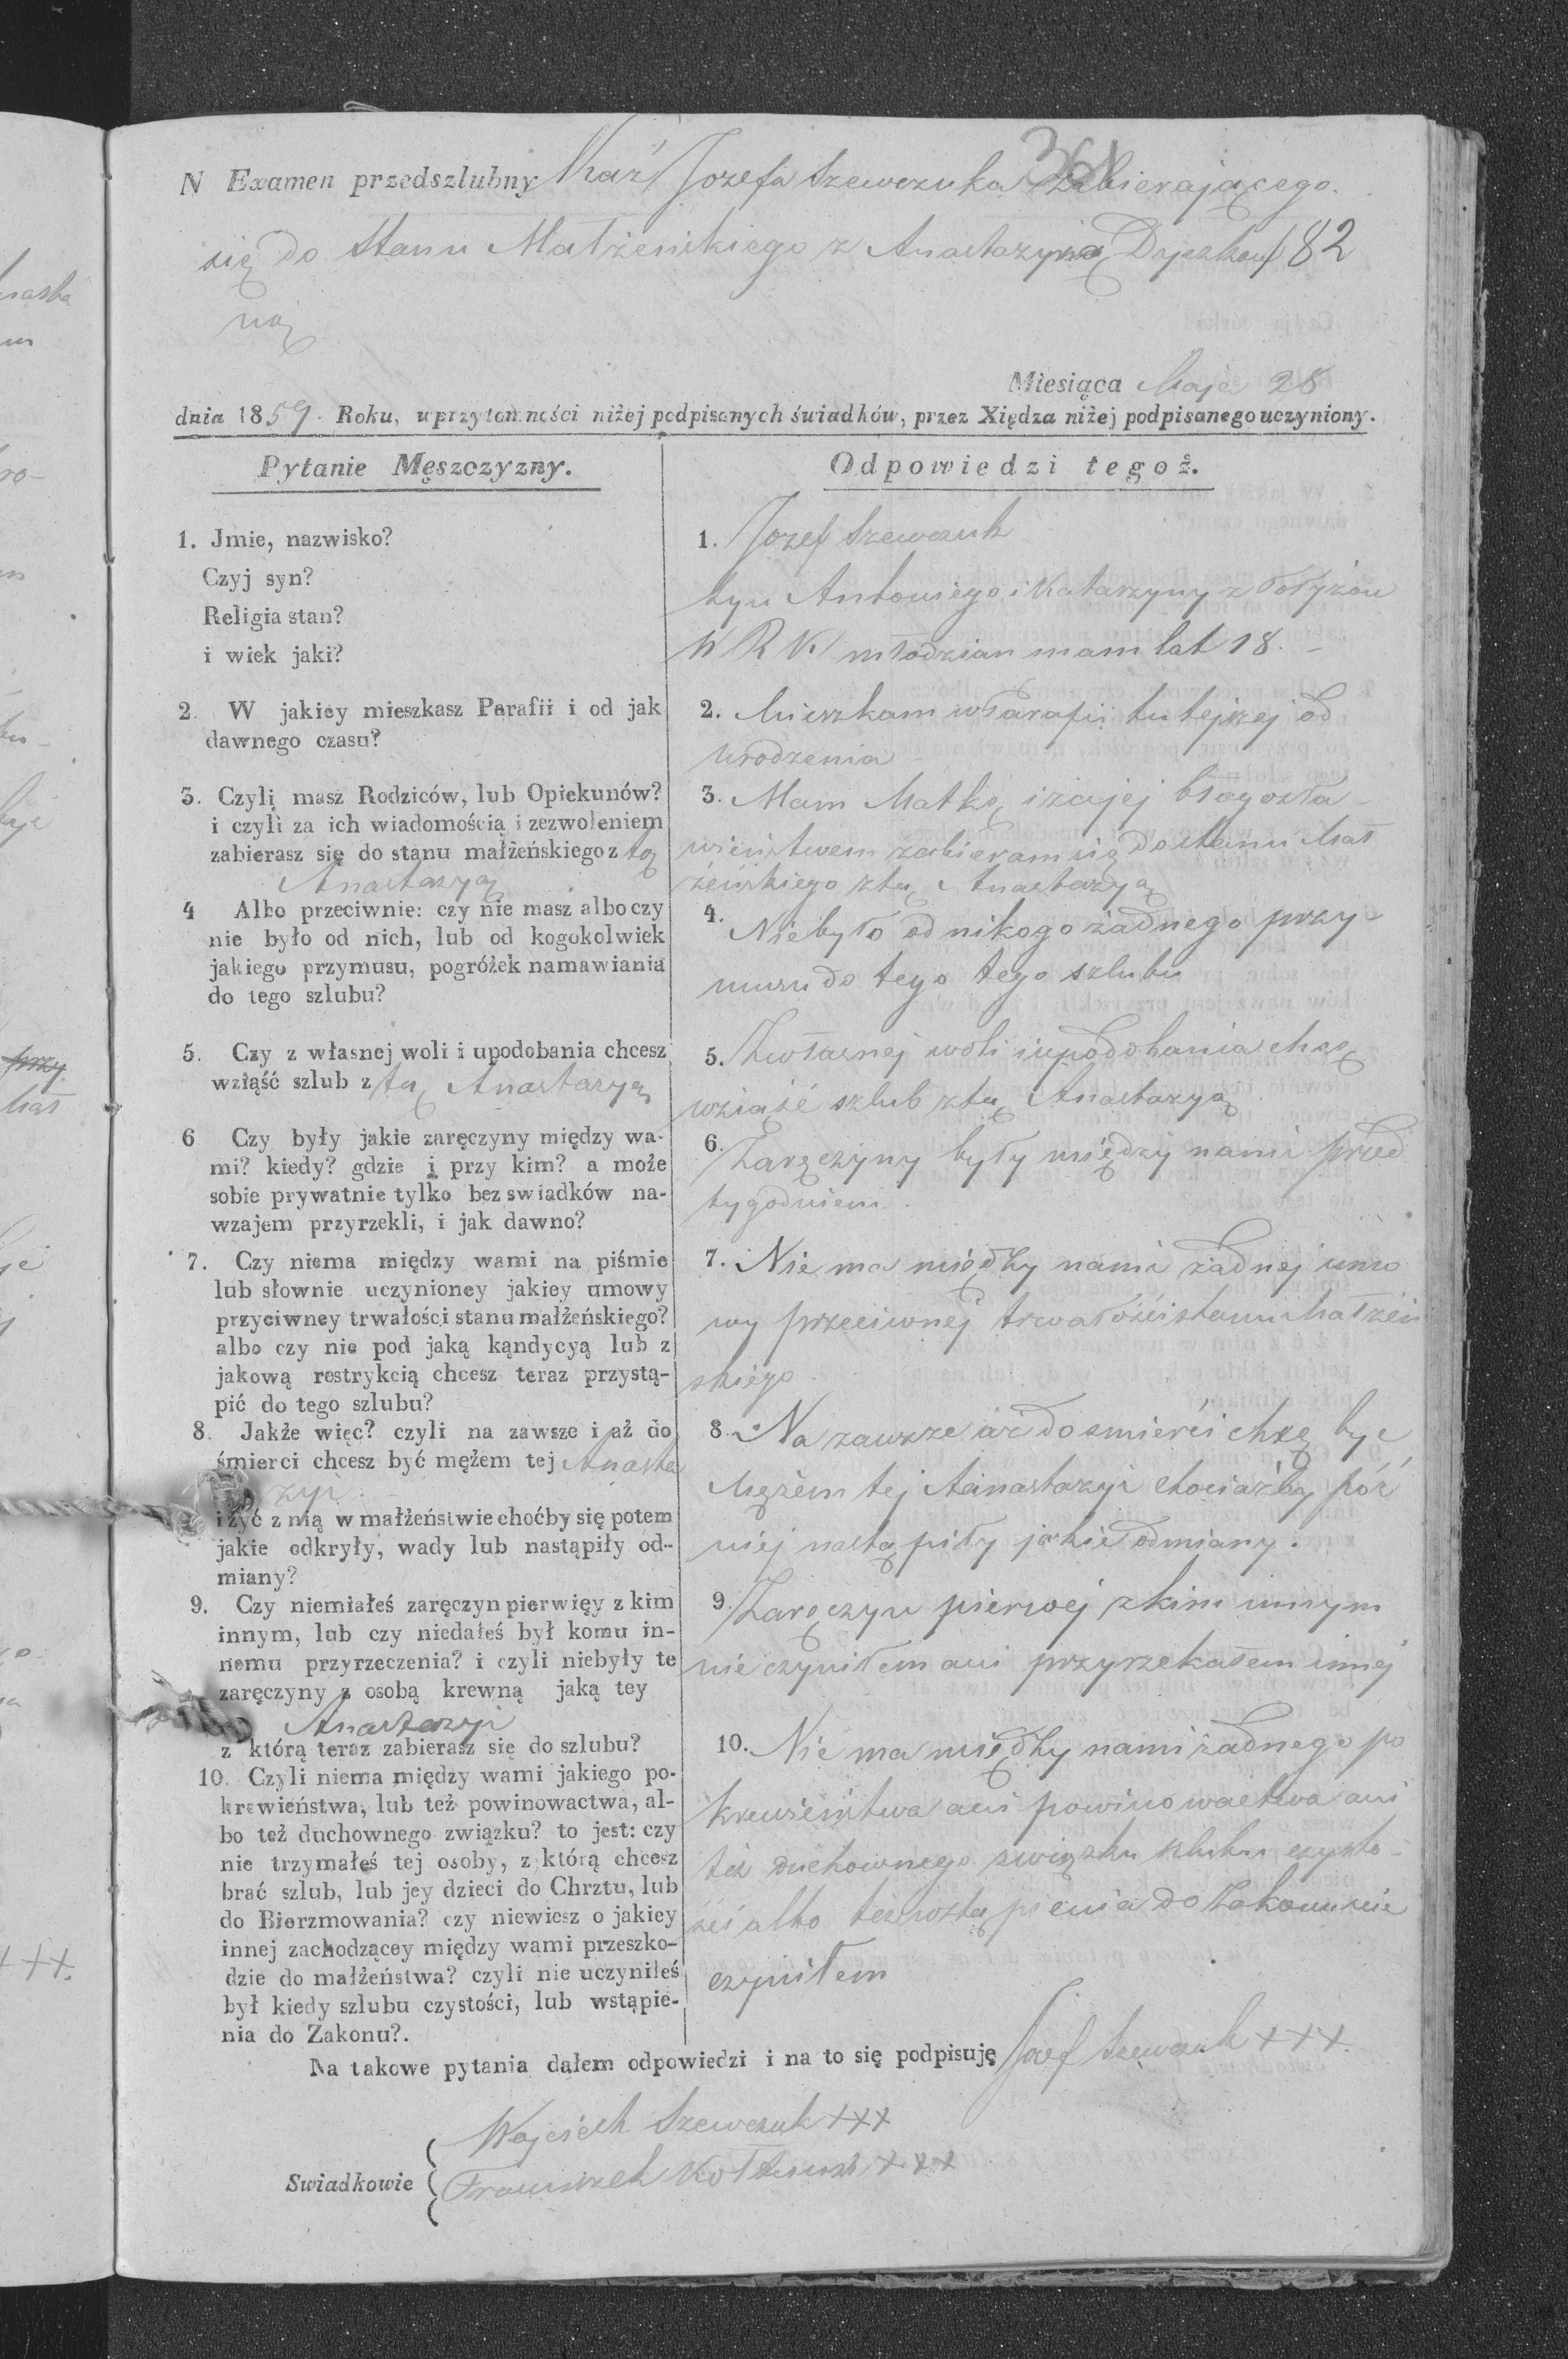 361
N Examen przedszlubny Józefa Szewczuka zabierającego
się do Stanu Małżeńskiego z Anastazyią Dyczkow 182
ną
Miesiąca Maja 28
dnia 1859 Roku, w przytomności niżej podpisanych świadków, przez Xiędza niżej podpisanego uczyniony.
Pytanie Męszczyzny.
1. Jmie, nazwisko?
Czyj syn?
Religia stan?
i wiek jaki?
2. W jakiey mieszkasz Parafii i od jak
dawnego czasu?
3. Czyli masz Rodziców, lub Opiekunów?
i czyli za ich wiadomością i zezwoleniem
zabierasz się do stanu małżeńskiego z tą
Anastazyą
4 Albo przeciwnie: czy nie masz albo czy
nie było od nich, lub od kogokolwiek
jakiego przymusu, pogróżek namawiania
do tego szlubu?
5. Czy z własnej woli i upodobania chcesz
wziąść szlub z tą Anastazyą
6 Czy były jakie zaręczyny między wa-
mi? kiedy? gdzie i przy kim? a może
sobie prywatnie tylko bez swiadków na-
wzajem przyrzekli, i jak dawno?
7. Czy niema między wami na piśmie
lub słownie uczynioney jakiey umowy
przyciwney trwałości stanu małżeńskiego?
albo czy nie pod jaką kąndycyą lub z
jakową restrykcią chcesz teraz przystą-
pić do tego szlubu?
8. Jakże więc? czyli na zawsze i aż do
śmierci chcesz być mężem tej Anasta
zyi
i żyć z nią w małżeństwie choćby się potem
jakie odkryły, wady lub nastąpiły od-
miany?
9. Czy niemiałeś zaręczyn pierwięy z kim
innym, lub czy niedałeś był komu in-
nemu przyrzeczenia? i czyli niebyły te
zaręczyny z osobą krewną jaką tey
Anastazyi
z którą teraz zabierasz się do szlubu?
10. Czyli niema między wami jakiego po-
krewieństwa, lub też powinowactwa, al-
bo też duchownego związku? to jest: czy
nie trzymałęś tej osoby, z którą chcesz
brać szlub, lub jey dzieci do Chrztu, lub
do Bierzmowania? czy niewiesz o jakiey
innej zachodzącey między wami przeszko-
dzie do małżeństwa? czyli nie uczyniłeś
był kiedy szlubu czystości, lub wstąpie-
nia do Zakonu?.
Odpowiedzi tegoż.
1. Jozef Szewczuk
Syn Antoniego i Katarzyny z
W R K młodzian mam lat 18. -
2. Mieszkam w Parafii tutejszej od
urodzenia
3. Mam Matkę i za jej błogosła
wieństwem zabieram się do stanu Mał
żeńskiego z tą Anastazyą
4. Nie było od nikogo żadnego przy
musu do tego tego szlubu
5. Z własnej woli i upodobania chcę
wziąść szlub z tą Anastazyą
6. Zaręczyny były między nami przed
tygodniem.
7. Nie ma między nami żadnej umo
wy przeciwnej trwałości stanu Małżeń
skiego
8. Na zawsze aż do smierci chcę być
Mężem tej Anastazyi chociażby póź
niej nastąpiły jakie odmiany.
9. Zaręczyn pierwej z kim innym
nie czyniłem ani przyrzekałem innej
10. Nie ma między nami żadnego po
krewieństwa ani powinowactwa ani
też duchownego związku szlubu czysto-
ści albo też wstąpienia do Zakonu nie
czyniłem
Na takowe pytania dałem odpowiedzi i na to się podpisuję Jozef Szewczuk +++
Wojciech Szewczuk +++
Swiadkowie Franciszek +++